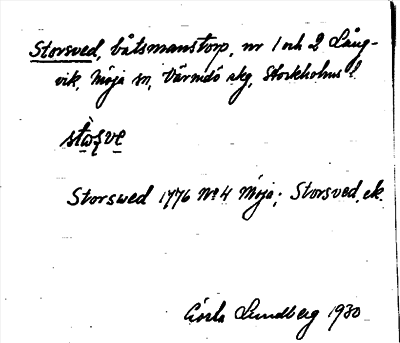 Storsved, båtsmanstorp, nr 1 och 2 Lång-
vik, Möja sn, Värmdö skg, Stockholms l.
stòsve
Storswed 1776 No 4 Möja; Storsved, ek.
Gösta Lundberg 1930